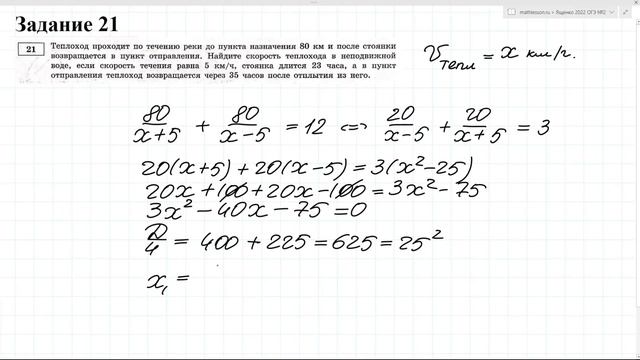 mathlesson.ru Ященко 2022 ОГЭ №2
Задание 21
21 Теплоход проходит по течению реки до пункта назначения 80 км и после стоянки
возвращается в пункт отправления. Найдите скорость теплохода в неподвижной
воде, если скорость течения равна 5 км/ч, стоянка длится 23 часа, а в пункт
отправления теплоход возвращается через 35 часов после отплытия из него.
Vтепл = x км/ч.
80/(x+5) + 80/(x-5) = 12 <=> 20/(x-5) + 20/(x+5) = 3
20(x+5) + 20(x-5) = 3(x²-25)
20x + 100 + 20x - 100 = 3x² - 75
3x² - 40x - 75 = 0
D/4 = 400 + 225 = 625 = 25²
x₁ =